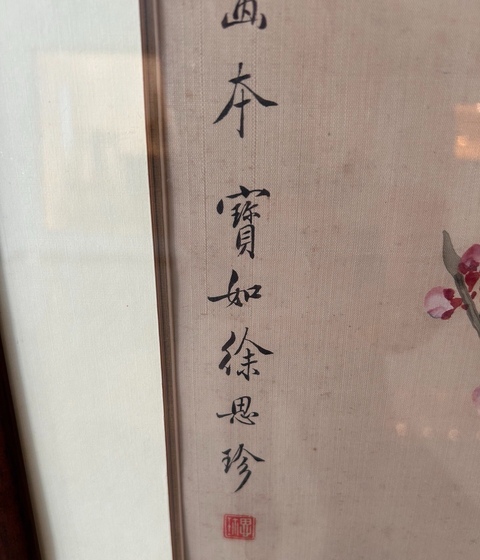 画本 寶如徐思珍